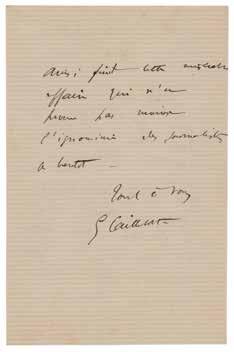 Ainsi finit cette
affaire qui n'en
prouve pas moins
l'ignominie des journalistes
a bientot -
Tout à vous
G Caillebotte